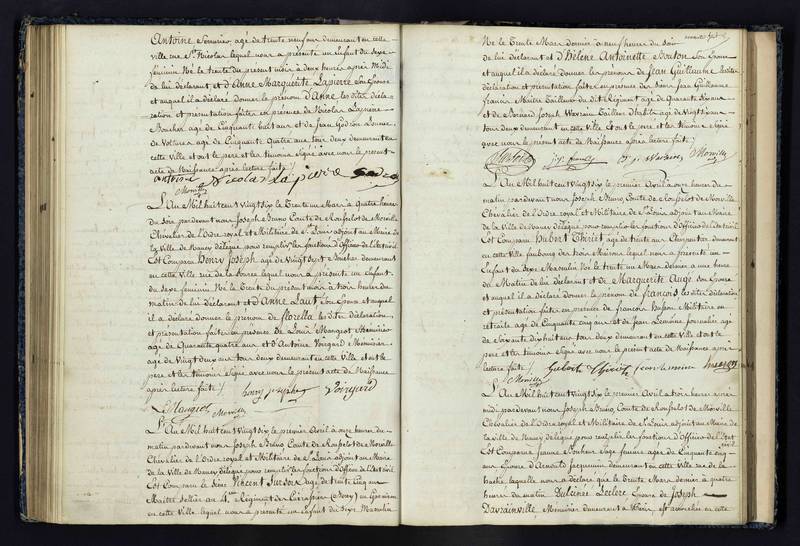 Antoine Sommier agé de trente neuf ans demeurant en cette
ville rue St Nicolas lequel nous a présenté un Enfant du Sexe
féminin Né le trente du present mois à deux heures après midi
de lui déclarant et d'Anne Marguerite Lapierre Son Epouse
et auquel il a déclaré donner le prénom d'Anne les dites décla-
ration et présentation faites en présence de Nicolas Lapierre
Boucher agé de Cinquante huit ans et de Jean Godron Loueur
de Voitures agé de Cinquante quatre ans tous deux demeurant en
cette Ville et ont le pere et les témoins Signé avec nous le present
acte de Naissance après lecture faite /
Nicolas Lapierre
L'An Mil huit cent Vingt Six le trente un Mars à quatre heures
du Soir pardevant nous Joseph Bruno Comte de Rouselot de Morville
Chevalier de l'Ordre royal et Militaire de St Louis adjoint au Maire de
la Ville de Nancy délégué pour remplir les fonctions d'Officier de l'état civil
Est Comparu Henry Joseph agé de Vingt Sept ans Boucher demeurant
en cette Ville rue de la lequel nous a présenté un Enfant
du Sexe féminin Né le trente du present mois à trois heures du
matin de lui déclarant et d'Anne Laut Son Epouse et auquel
il a déclaré donner le prénom de florella les dites déclaration
et présentation faites en présence de Louis Mangeot Menuisier
agé de Quarante quatre ans et d'Antoine Voignard Menuisier
agé de Vingt deux ans tous deux demeurant en cette Ville et ont le
pere et les témoins Signé avec nous le present acte de Naissance
après lecture faite /
L. Mangeot Morville
L'An Mil huit cent Vingt Six le premier Avril à onze heures du
matin pardevant nous Joseph Bruno Comte de Rouselot de Morville
Chevalier de l'Ordre royal et Militaire de St Louis adjoint au Maire
de la Ville de Nancy délégué pour remplir les fonctions d'Officier de l'état civil
Est Comparu le Sieur Vincent Surdoie agé de trente Cinq ans
Maitre Sellier au 4me Régiment de Cuirassiers en Garnison
en cette Ville lequel nous a présenté un Enfant du Sexe Masculin
Né le Trente Mars dernier à neuf heures du Soir
de lui déclarant et d'Hélene Antoinette Bouton Son Epouse
et auquel il a déclaré donner les prénoms de Jean Guillaume les dites
déclaration et présentation faites en présence des Sieurs Jean Guillaume
Francis Maitre tailleur du dit Régiment agé de Quarante Six ans
et de Bernard Joseph Warrain tailleur d'habits agé de Vingt Six ans
tous deux demeurant en cette Ville et ont le pere et les témoins Signé
avec nous le present acte de Naissance après lecture faite /
Morville
L'An Mil huit cent Vingt Six le premier Avril à onze heures du
matin pardevant nous Joseph Bruno Comte de Rouselot de Morville
Chevalier de l'Ordre royal et Militaire de St Louis adjoint au Maire
de la Ville de Nancy délégué pour remplir les fonctions d'Officier de l'état civil
Est Comparu Hubert Thiriet agé de trente ans Charpentier demeurant
en cette Ville faubourg des trois Maisons lequel nous a présenté un
Enfant du Sexe Masculin Né le trente un Mars dernier à une heure
du Matin de lui déclarant et de Marguerite Augé Son Epouse
et auquel il a déclaré donner le prénom de françois les dites déclaration
et présentation faites en présence de francois husson Militaire en
retraite agé de Cinquante cinq ans et de Jean Lemoine fournalier agé
de Soixante dix huit ans tous deux demeurant en cette Ville et ont le
pere et les témoins Signé avec nous le present acte de Naissance après
lecture faite /
Morville
L'An Mil huit cent Vingt Six le premier Avril à trois heures après
midi pardevant nous Joseph Bruno Comte de Rouselot de Morville
Chevalier de l'Ordre royal et Militaire de St Louis adjoint au Maire de
la Ville de Nancy délégué pour remplir les fonctions d'Officier de l'Etat civil
Est Comparue Jeanne Bonheur Sage femme agée de Cinquante cinq
ans Epouse d'Arnould Jacquemin demeurant en cette Ville rue de la
hache laquelle nous a déclaré que le trente Mars dernier à quatre
heures du matin Dulcinée Leclerc Epouse de Joseph
Davrainville, Menuisier demeurant à est accouchée en cette